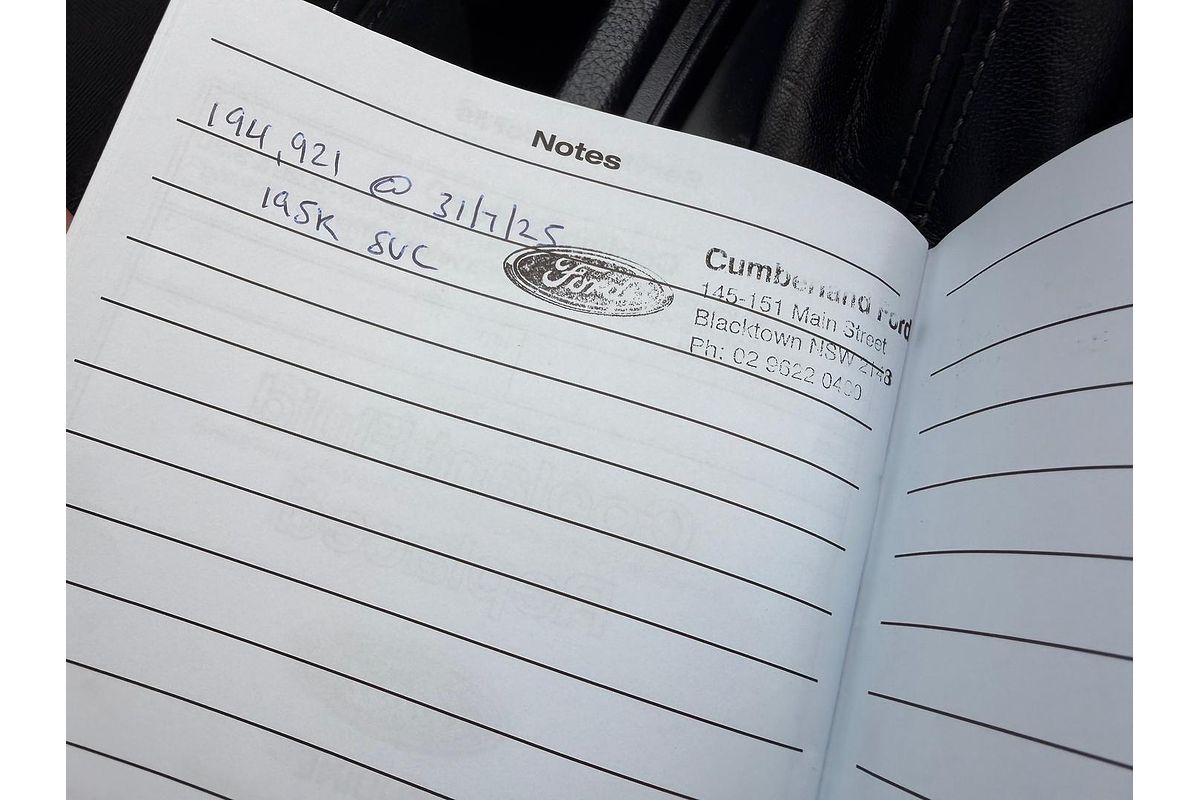 Notes
194,921 @ 31/7/25
195K SVC
Ford
Cumberland Ford
145-151 Main Street
Blacktown NSW 2148
Ph: 02 9622 0400